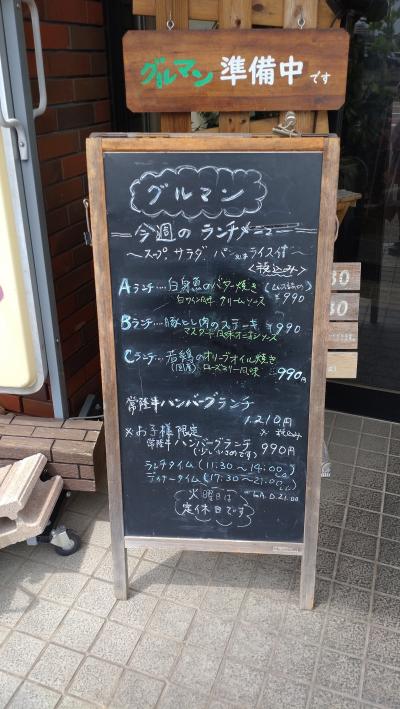 グルマン 準備中です
グルマン
今週のランチメニュー
〜スープ サラダ パン又はライス付〜
<税込み>
Aランチ…白身魚のバター焼き
¥990
白ワイン風味 クリームソース
Bランチ…豚ヒレ肉のステーキ ¥990
マスタード風味オニオンソース
Cランチ…若鶏のオリーブオイル焼き
(国産) ローズマリー風味 990円
常陸牛ハンバーグランチ
1.210円
※お子様限定 ※税込み
常陸牛ハンバーグランチ 990円
(少し小さめです)
ランチタイム (11:30〜14:00)
ディナータイム (17:30〜21:00)
火曜日は
定休日です